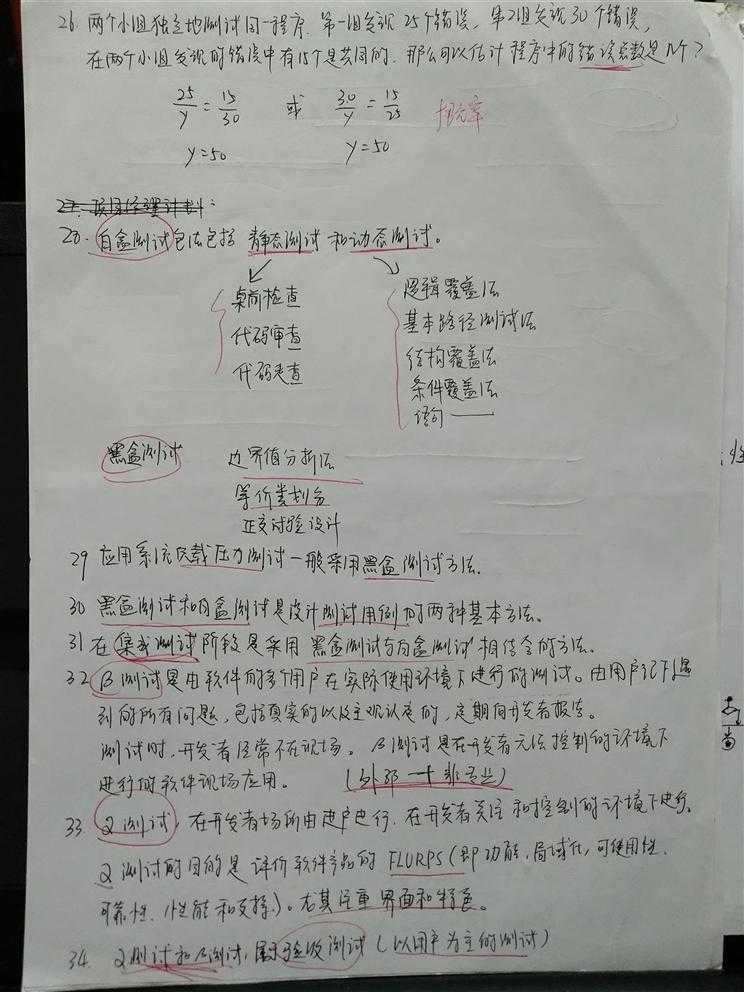 26. 两个小组独立地测试同一程序. 第一组发现25个错误, 第2组发现30个错误,
在两个小组发现的错误中有15个是共同的. 那么可以估计程序中的错误总数是几个?
25/y = 15/30 或 30/y = 15/25 捕捉率
y=50 y=50
28. 白盒测试包法包括 静态测试和动态测试。
桌前检查 逻辑覆盖法
代码审查 基本路径测试法
代码走查 结构覆盖法
条件覆盖法
语句——
黑盒测试 边界值分折法
等价类划分
正交试验设计
29 应用系统负载压力测试一般采用黑盒测试方法.
30 黑盒测试和白盒测试是设计测试用例的两种基本方法。
31 在集成测试阶段是采用 黑盒测试与白盒测试相结合的方法.
32 β测试是由软件的多个用户在实际使用环境下进行的测试。由用户记下遇
到的所有问题, 包括真实的以及主观认定的, 定期向开发者报告。
测试时, 开发者经常不在现场。 β测试是在开发者无法控制的环境下
进行的软件现场应用。 (外部一十非专业)
33. α测试, 在开发者场所由用户进行. 在开发者关注和控制的环境下进行。
α测试的目的是评价软件产品的FLURPS(即功能, 局域化, 可使用性.
可靠性. 性能和支持)。尤其注重界面和特色。
34 α测试和β测试, 属于验收测试(以用户为主的测试)